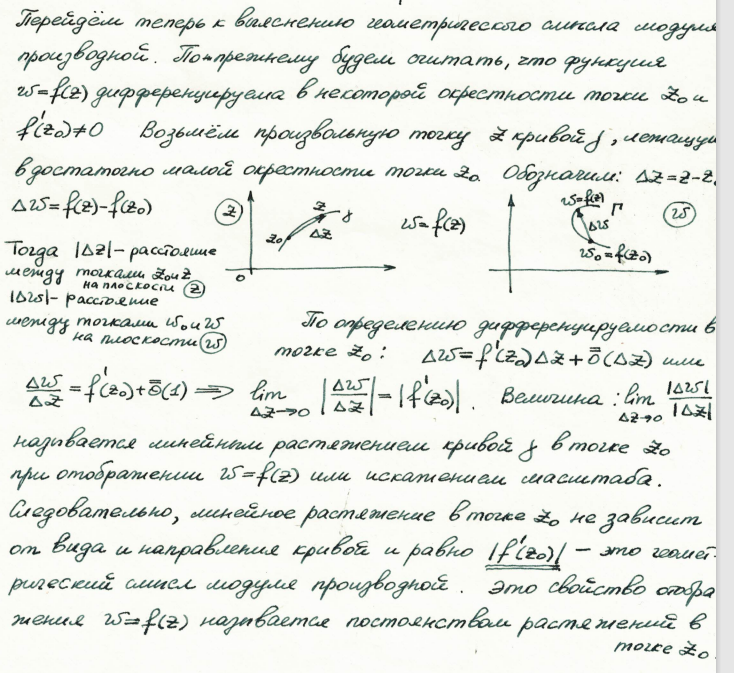 Перейдём теперь к выяснению геометрического смысла модуля
производной. По-прежнему будем считать, что функция
w=f(z) дифференцируема в некоторой окрестности точки z₀ и
f'(z₀)≠0 Возьмём произвольную точку z кривой γ, лежащую
в достаточно малой окрестности точки z₀. Обозначим: Δz=z-z₀
Δw=f(z)-f(z₀)
z
z γ
z₀ Δz
0
w=f(z)
w=f(z) Γ
Δw
w₀=f(z₀)
w
Тогда |Δz|- расстояние
между точками z₀ и z
на плоскости z
|Δw|- расстояние
между точками w₀ и w
на плоскости w
По определению дифференцируемости в
точке z₀: Δw=f'(z₀)Δz+ō(Δz) или
Δw/Δz = f'(z₀)+ō(1) ⟹ lim Δz→0 |Δw/Δz| = |f'(z₀)|. Величина: lim Δz→0 |Δw|/|Δz|
называется линейным растяжением кривой γ в точке z₀
при отображении w=f(z) или искажением масштаба.
Следовательно, линейное растяжение в точке z₀ не зависит
от вида и направления кривой и равно |f'(z₀)| – это геомет-
рический смысл модуля производной. Это свойство отобра
жения w=f(z) называется постоянством растяжений в
точке z₀.